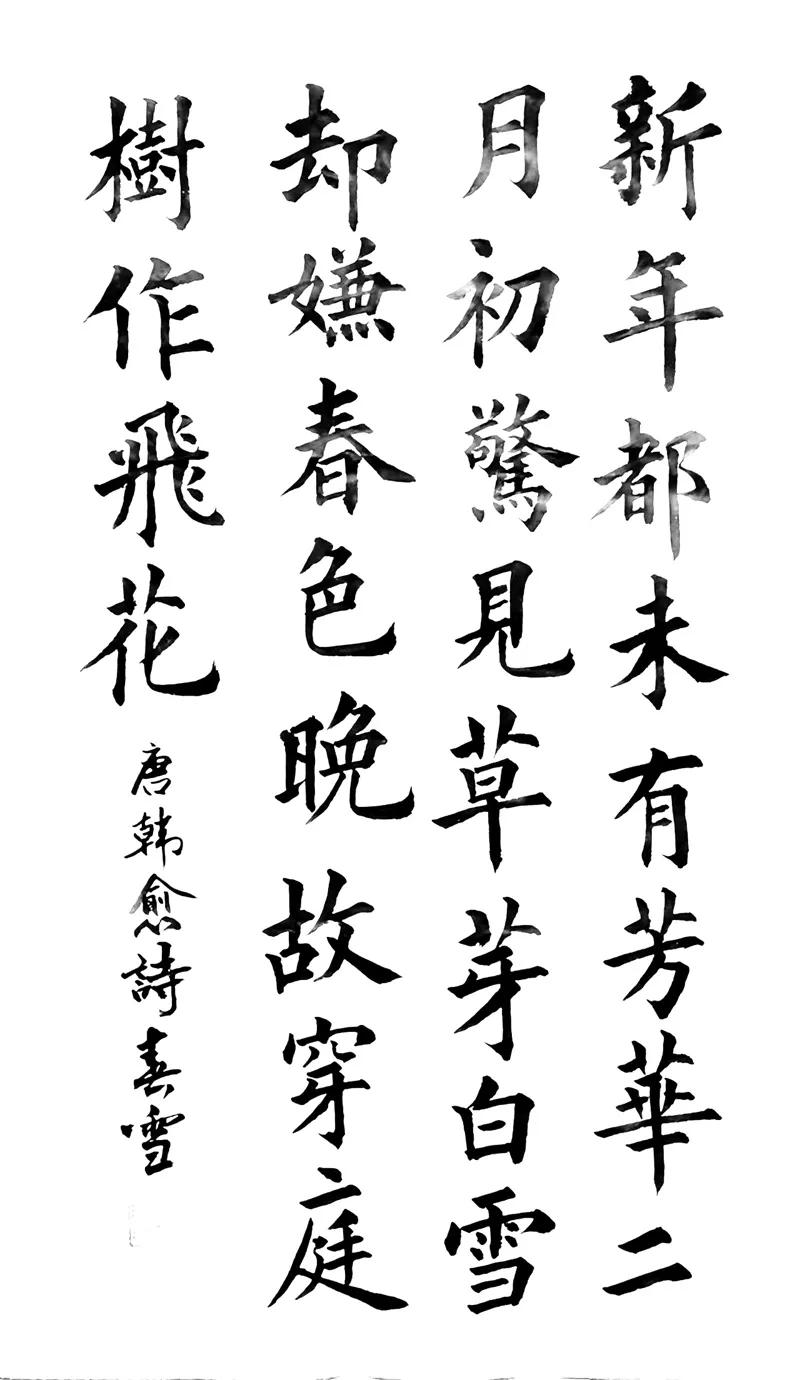 新年都未有芳華二
月初驚見草芽白雪
却嫌春色晚故穿庭
樹作飛花
唐韓愈詩春雪